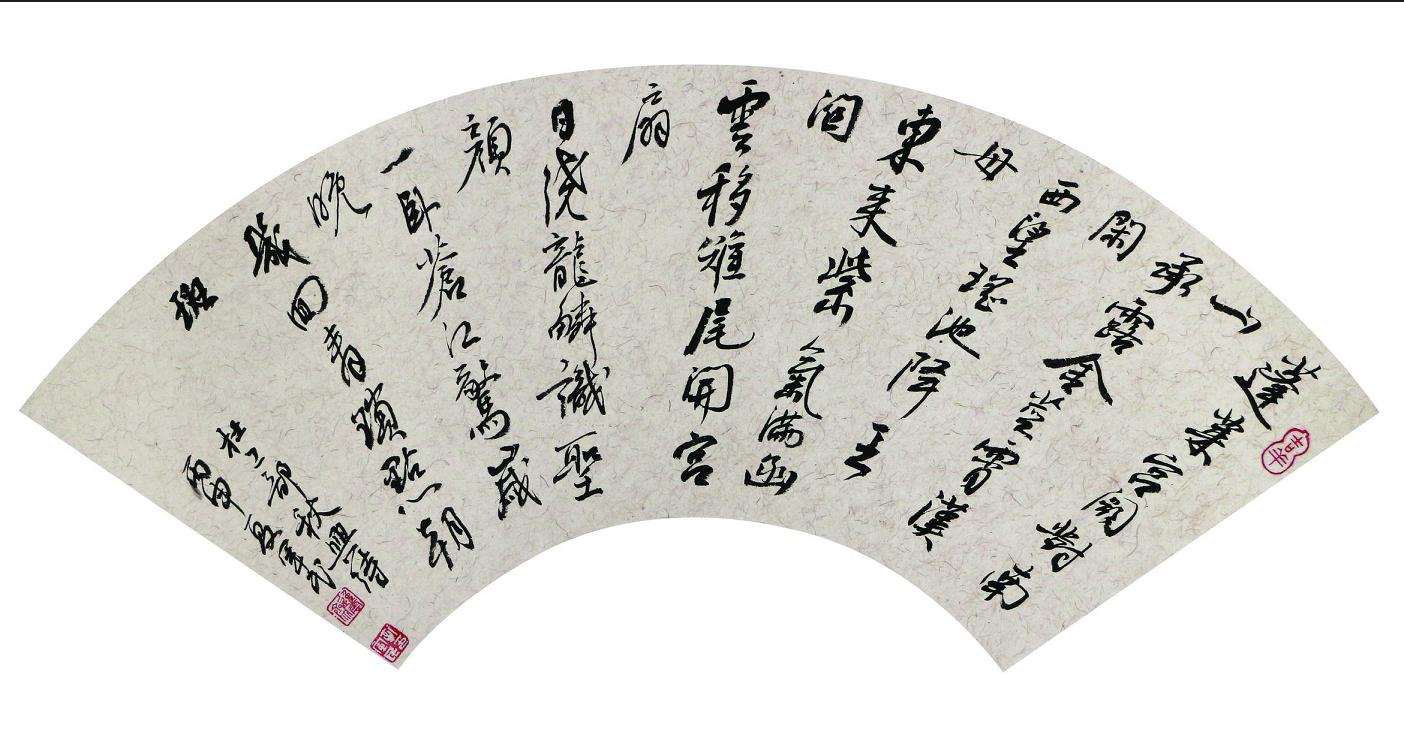 蓬莱宫闕對南
山
承露金莖霄漢
閒
西望瑶池降王
母
東来紫氣滿函
関
雲移雉尾開宫
扇
日繞龍鱗識聖
顔
一卧滄江驚歲
晚
幾回青瑣點朝
班
杜工部秋興詩
丙申夏
吉羊